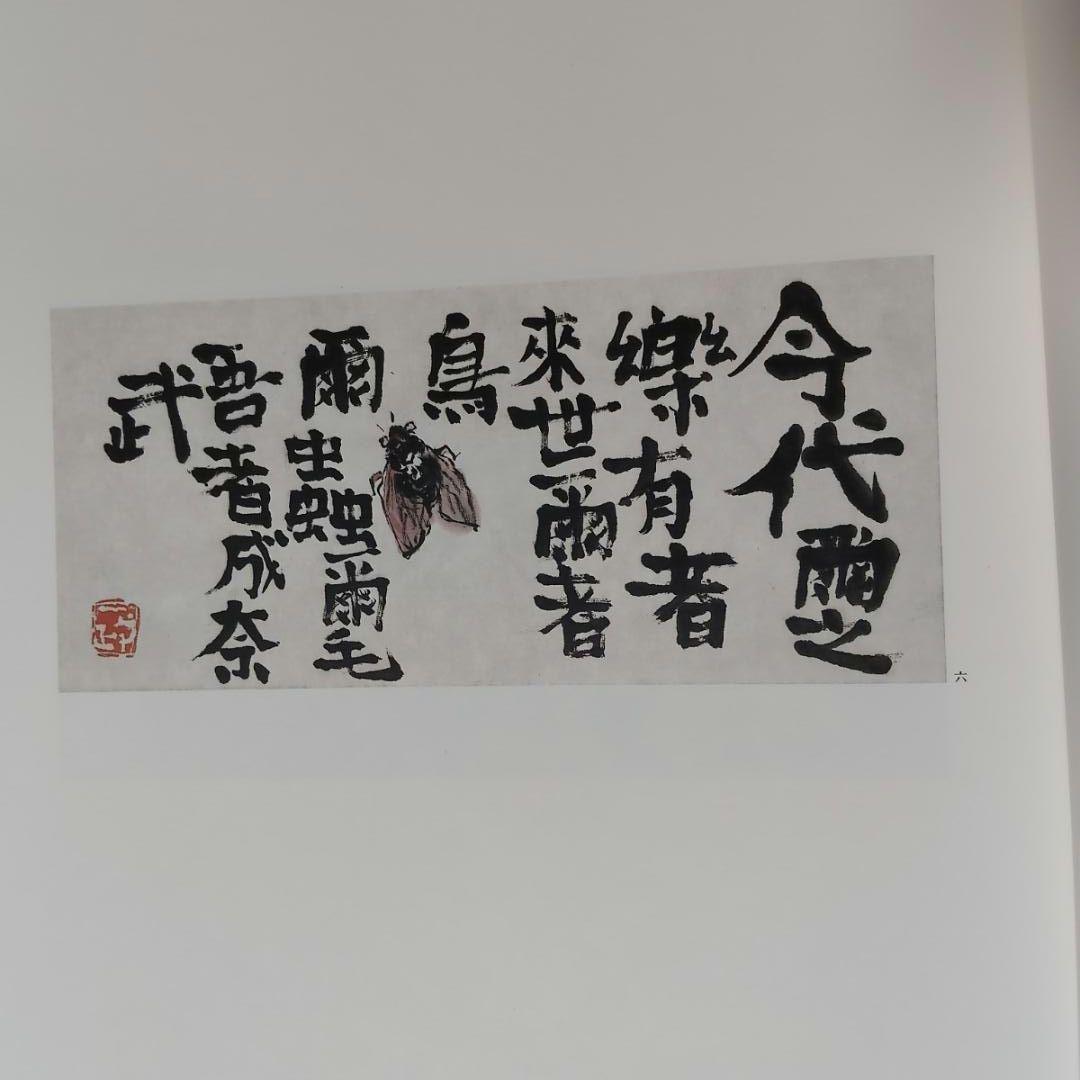 今代爾之
樂有者
來世爾者
鳥
爾蟲爾毛
吾者成奈
武
六